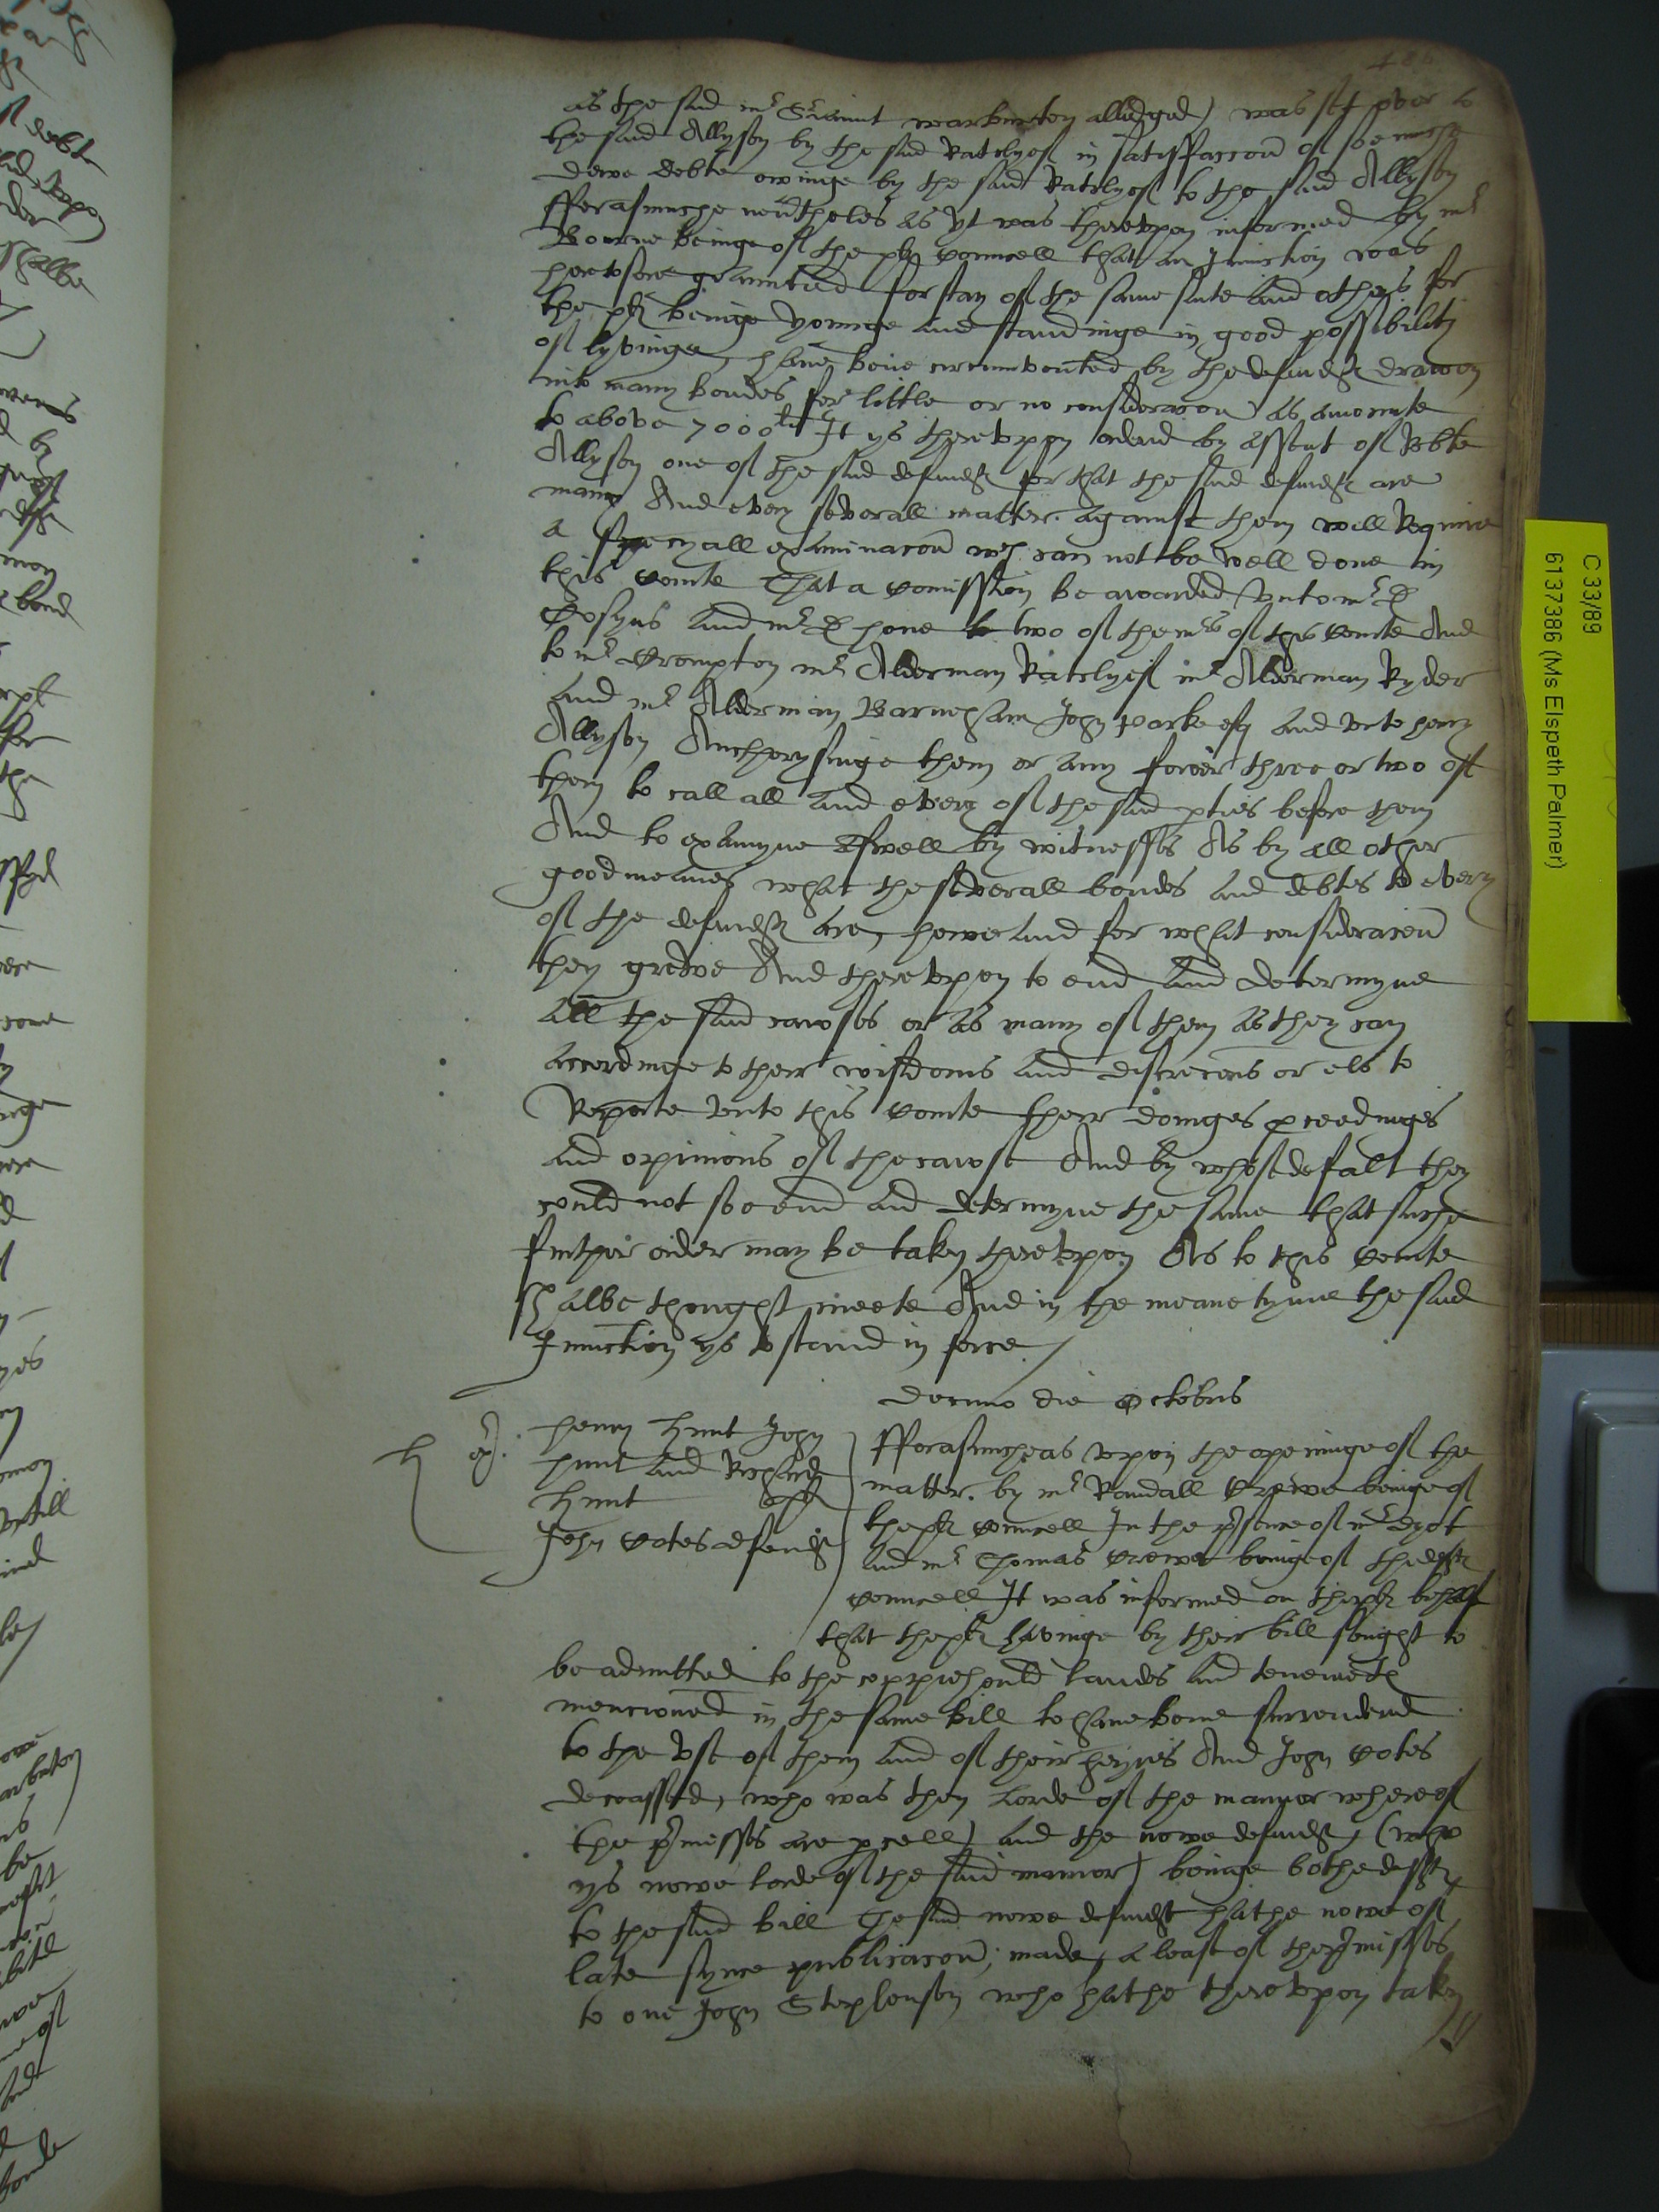 as the said mr Sriaunt warburton alledged) was set over to
the said Allyson by the said Ratclyef in satisfaccon of soe muche
dewe debte owinge by the said Ratclyef to the said Allyson
fforasmuche neūtheles as yt was thereupon informed by mr
Bourne beinge of the plt councell that an Iniunction was
heretofore graunted for stay of the same suite and others for
the plt beinge younge and standinge in good possibility
of lyvinge, have bene circumvented by the defendts drawen
into many bondes for little or no consideracon as amounte
to above 7000li It ys thereuppon ordered by assent of Robte
Allyson one of the said defendts for that the said defendts are
many And every severall matter against them will Require
a specyall examinacon wch can not be well done in
this Courte That a Comission be awarded unto mr D
Cosyns and mr D hone two of the mrs of this Courte And
to mr Crompton mr Alderman Ratclyef mr Alderman Ryder
and mr Alderman Barneham John parke esq and unto henry
Allyson Aucthorysinge them or any fower three or two of
them to call all and every of the said pties before them
And to examyne Aswell by witnesses As by all other
good meanes what the severall bondes and debtes to every
of the defendts are, howe and for what consideracon
they growe And thereupon to end and determyne
all the said cawses or as many of them as they can
accordinge to their wisdoms and discrecons or els to
Reporte unto this Courte their doinges pceedinges
and opinions of the cawse And by whose default they
could not soe end and determyne the same that suche
further order may be taken thereupon As to this Courte
shalbe thought meete And in the meane tyme the said
Iniunction ys to stand in force /
Decimo die Octobris
H
henry hunt John
hunt and Richard
hunt plts
John Cotes defendt
fforasmuche as upon the openinge of the
matter by mr Randall Crewe beinge of
the plts councell In the psence of mr dyot
and mr Thomas Crewe beinge of the defts
councell It was informed on the plts behalf
that the plts havinge by their bill sought to
be admitted to the coppiehould landes and tenemts
mencioned in the same bill to have bene surrendred
to the use of them and of their heyres And John Cotes
deceassed, who was then Lorde of the mannor whereof
the pmisses are pcell) and the nowe defendt, (who
ys nowe lorde of the said mannor) beinge bothe defts
to the said bill The said nowe defendt hathe nowe of
late synce publicacon, made, a lease of the pmisses
to one John Stephenson who hathe thereupon taken
C 33/89
6137386 (Ms Elspeth Palmer)